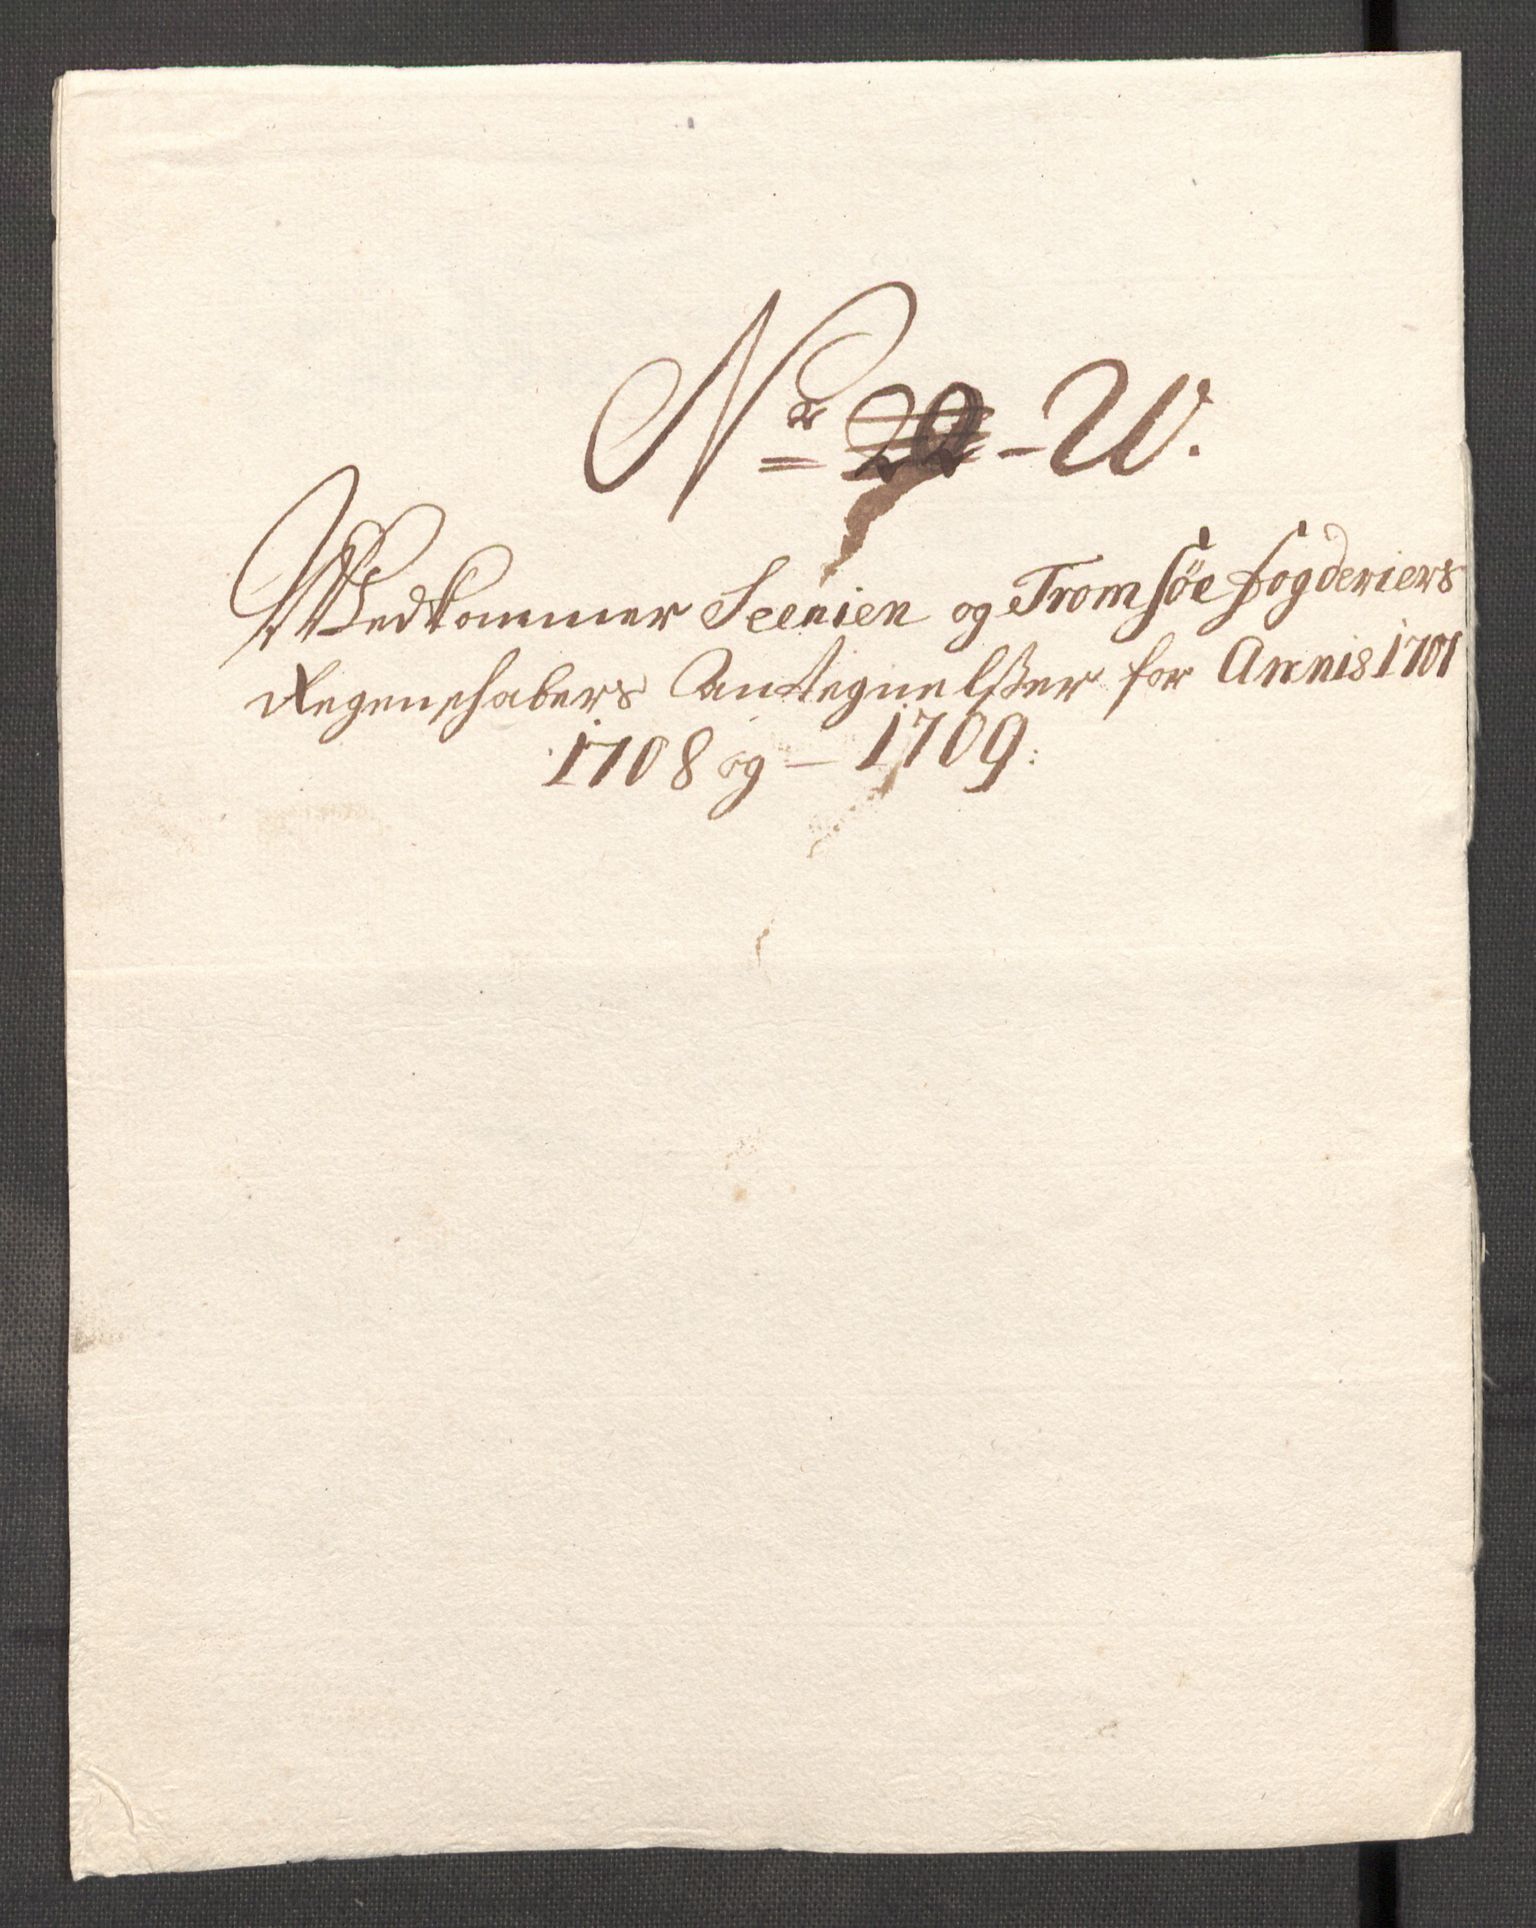 No 22 - W.
Vedkommer Seenien og Tromsöe fogderiers
Regenschabers Antegnelßer for Annis 1707
1708 og - 1709: